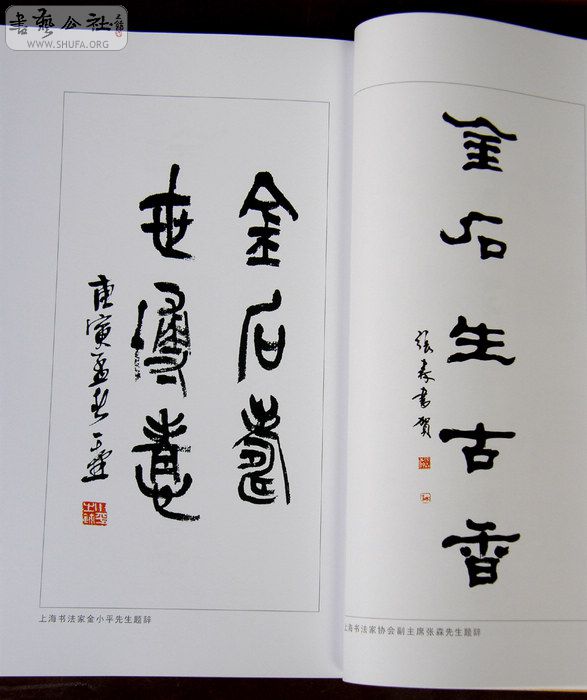 書藝公社
WWW.SHUFA.ORG
金石生古香
张森书贺
金石
世
庚寅孟春
上海书法家金小平先生题辞
上海书法家协会副主席张森先生题辞